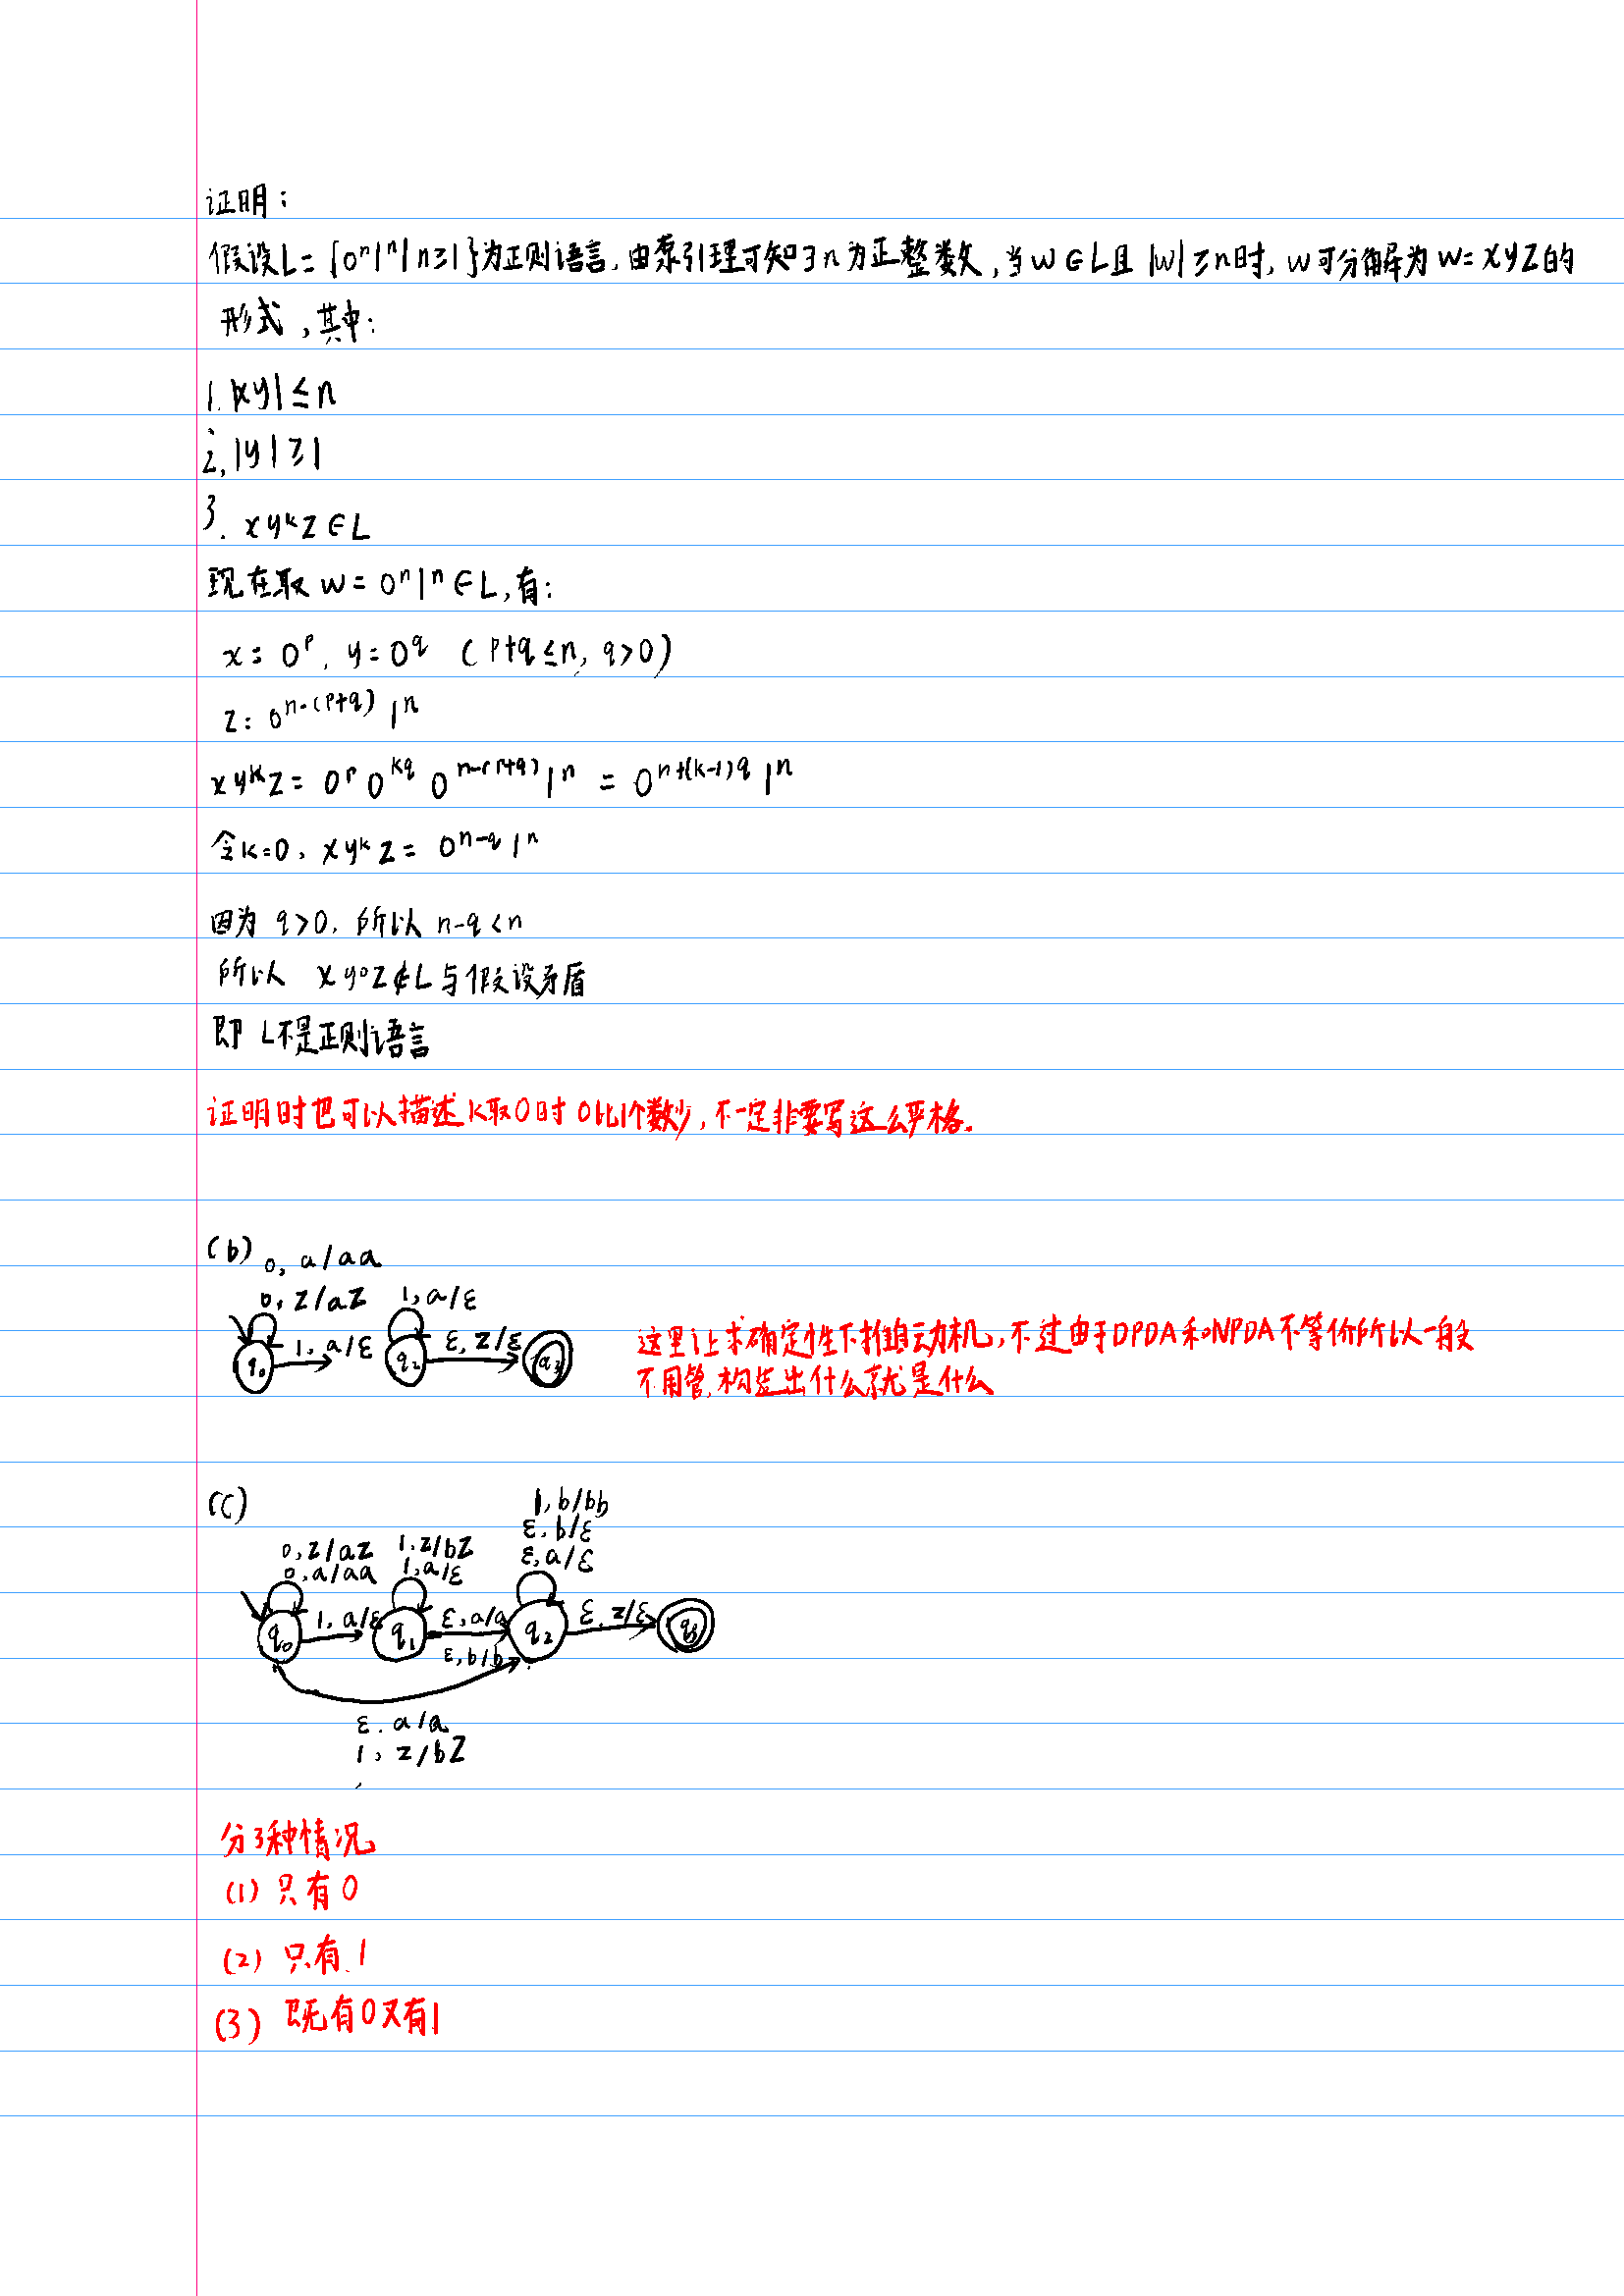 证明:
假设L={0ⁿ1ⁿ|n≥1}为正则语言,由泵引理可知∃n为正整数,当w∈L且|w|≥n时,w可分解为w=xyz的
形式,其中:
1.|xy|≤n
2.|y|≥1
3.xyᵏz∈L
现在取w=0ⁿ1ⁿ∈L,有:
x=0^p, y=0^q (p+q≤n, q>0)
z:0^{n-(p+q)} 1ⁿ
xyᵏz=0^p 0^{kq} 0^{n-(p+q)} 1ⁿ = 0^{n+(k-1)q} 1ⁿ
令k=0, xyᵏz=0^{n-q} 1ⁿ
因为 q>0, 所以 n-q<n
所以 xy⁰z∉L与假设矛盾
即 L不是正则语言
证明时也可以描述k取0时0比1个数少,不一定非要写这么严格.
(b) 0, a/aa
0, Z/aZ 1, a/ε
q₀ 1, a/ε q₂ ε, Z/ε q₃
这里让求确定性下推自动机,不过由于DPDA和NPDA不等价所以一般
不用管,构造出什么就是什么
(c)
1, b/bb
ε, b/ε
0, Z/aZ 1, Z/bZ ε, a/ε
0, a/aa 1, a/ε
q₀ 1, a/ε q₁ ε, a/a q₂ ε, Z/ε q₃
ε, b/b
ε, a/a
1, Z/bZ
分3种情况
(1) 只有0
(2) 只有1
(3) 既有0又有1